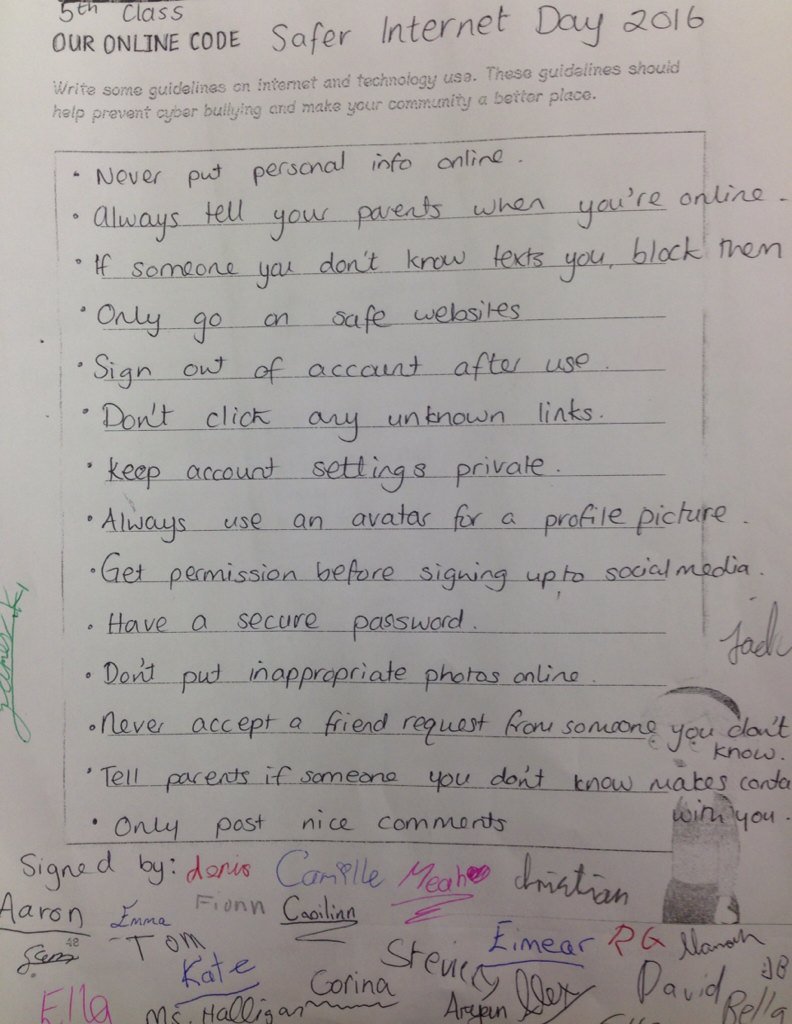 5th Class
OUR ONLINE CODE Safer Internet Day 2016
Write some guidelines on internet and technology use. These guidelines should
help prevent cyber bullying and make your community a better place.
• Never put personal info online.
• Always tell your parents when you're online.
• If someone you don't know texts you, block them
• Only go on safe websites
• Sign out of account after use.
• Don't click any unknown links.
• Keep account settings private.
• Always use an avatar for a profile picture.
• Get permission before signing up to social media.
• Have a secure password.
James K
Jack
• Don't put inappropriate photos online.
• Never accept a friend request from someone you don't
know.
• Tell parents if someone you don't know makes conta
with you.
• Only post nice comments
Signed by: denis Camille Meah Christian
Aaron Emma Fionn Caoilinn
48 Tom Stevie Eimear RG
Kate Corina Alex David
Ella Ms. Halligan Bella